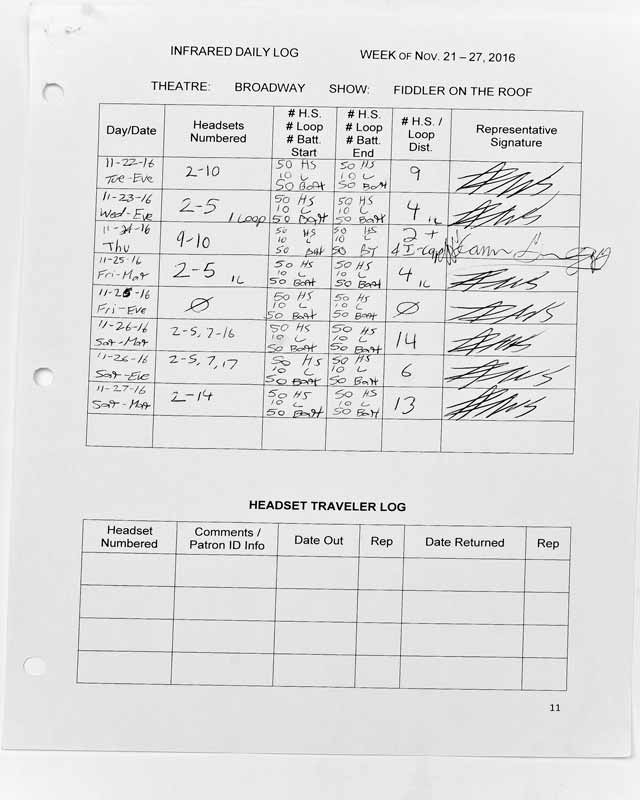 INFRARED DAILY LOG WEEK OF NOV. 21 – 27, 2016
THEATRE: BROADWAY SHOW: FIDDLER ON THE ROOF
Day/Date
Headsets
Numbered
# H.S.
# Loop
# Batt.
Start
# H.S.
# Loop
# Batt.
End
# H.S. /
Loop
Dist.
Representative
Signature
11-22-16
Tue-Eve
2-10
50 HS
10 L
50 Batt
50 HS
10 L
50 Batt
9
11-23-16
Wed-Eve
2-5 1 Loop
50 HS
10 L
50 Batt
50 HS
10 L
50 Batt
4 1L
11-24-16
Thu
9-10
50 HS
10 L
50 Batt
50 HS
10 L
50 BT
2 +
11-25-16
Fri-Mat
2-5 1L
50 HS
10 L
50 Batt
50 HS
10 L
50 Batt
4 1L
11-25-16
Fri-Eve
Ø
50 HS
10 L
50 Batt
50 HS
10 L
50 Batt
Ø
11-26-16
Sat-Mat
2-5, 7-16
50 HS
10 L
50 Batt
50 HS
10 L
50 Batt
14
11-26-16
Sat-Eve
2-5, 7, 17
50 HS
10 L
50 Batt
50 HS
10 L
50 Batt
6
11-27-16
Sat-Mat
2-14
50 HS
10 L
50 Batt
50 HS
10 L
50 Batt
13
HEADSET TRAVELER LOG
Headset
Numbered
Comments /
Patron ID Info
Date Out
Rep
Date Returned
Rep
11